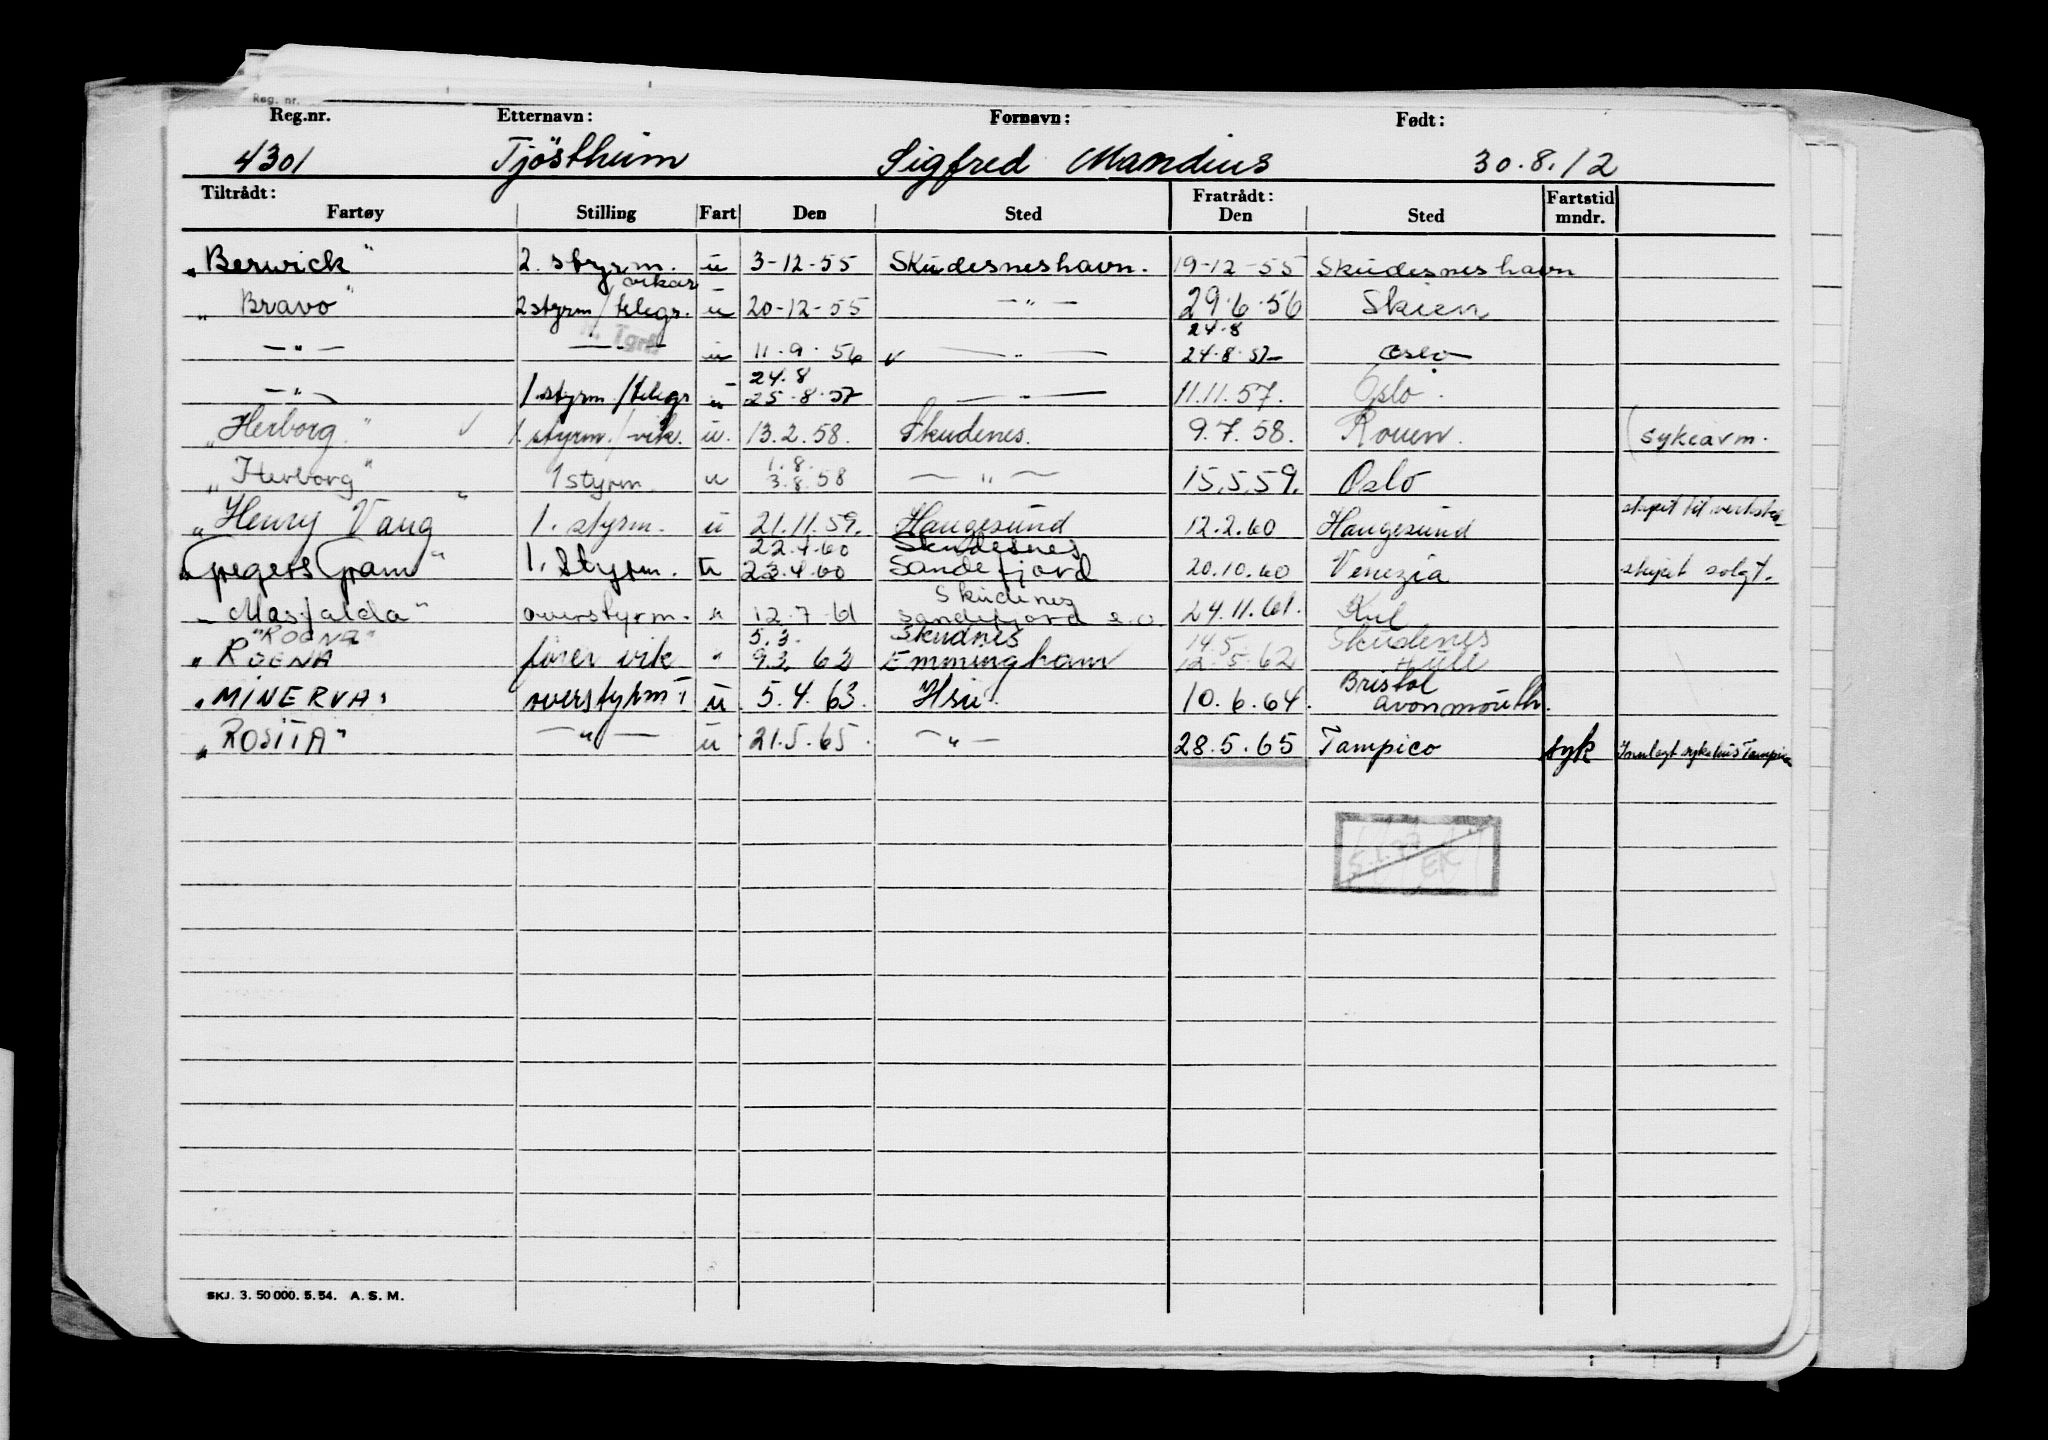 Reg. nr.
Reg.nr. Etternavn: Fornavn: Født:
4301 Tjöstheim Sigfred Mandius 30.8.12
Tiltrådt: Fratrådt: Fartstid
Fartøy Stilling Fart Den Sted Den Sted mndr.
"Berwick" 2. styrm. u 3-12-55 Skudesneshavn. 19-12-55 Skudesneshavn
vikar
"Bravo" 2styrm/telegr. u 20-12-55 —"— 29.6.56 Skien
Tgrf 24.8
—"— u 11.9.56 —"— 24.8.57 Oslo
24.8
—"— 1.styrm/telegr u 25.8.57 —"— 11.11.57. Oslo.
"Herborg." 1. styrm./vik. u. 13.2.58. Skudenes. 9.7.58. Rouen. (sykeavm.
1.8.
"Herborg" 1styrm. u 3.8.58 —"— 15.5.59. Oslo
"Henry Vang" 1. styrm. u 21.11.59. Haugesund 12.2.60 Haugesund
22.4.60 Skudesnes
"Gregers Gram" 1. styrm. u 23.4.60 Sandefjord 20.10.60 Venezia skipet solgt.
Skudenes
"Masfalda" overstyrm. " 12.7.61 Sandefjord 24.11.61. Kiel
"ROENA" 5.3. Skudnes 14.5. Skudenes
"ROENA fører vik " 9.3 62 Emmingham 12.5.62 Hull
Bristol
"MINERVA" overstyrm. u 5.4.63. 10.6.64. Avonmouth.
"ROSITA" —"— u 21.5.65. —"— 28.5.65 Tampico syk Innlagt sykehus Tampico
SKJ. 3. 50 000. 5.54. A. S. M.